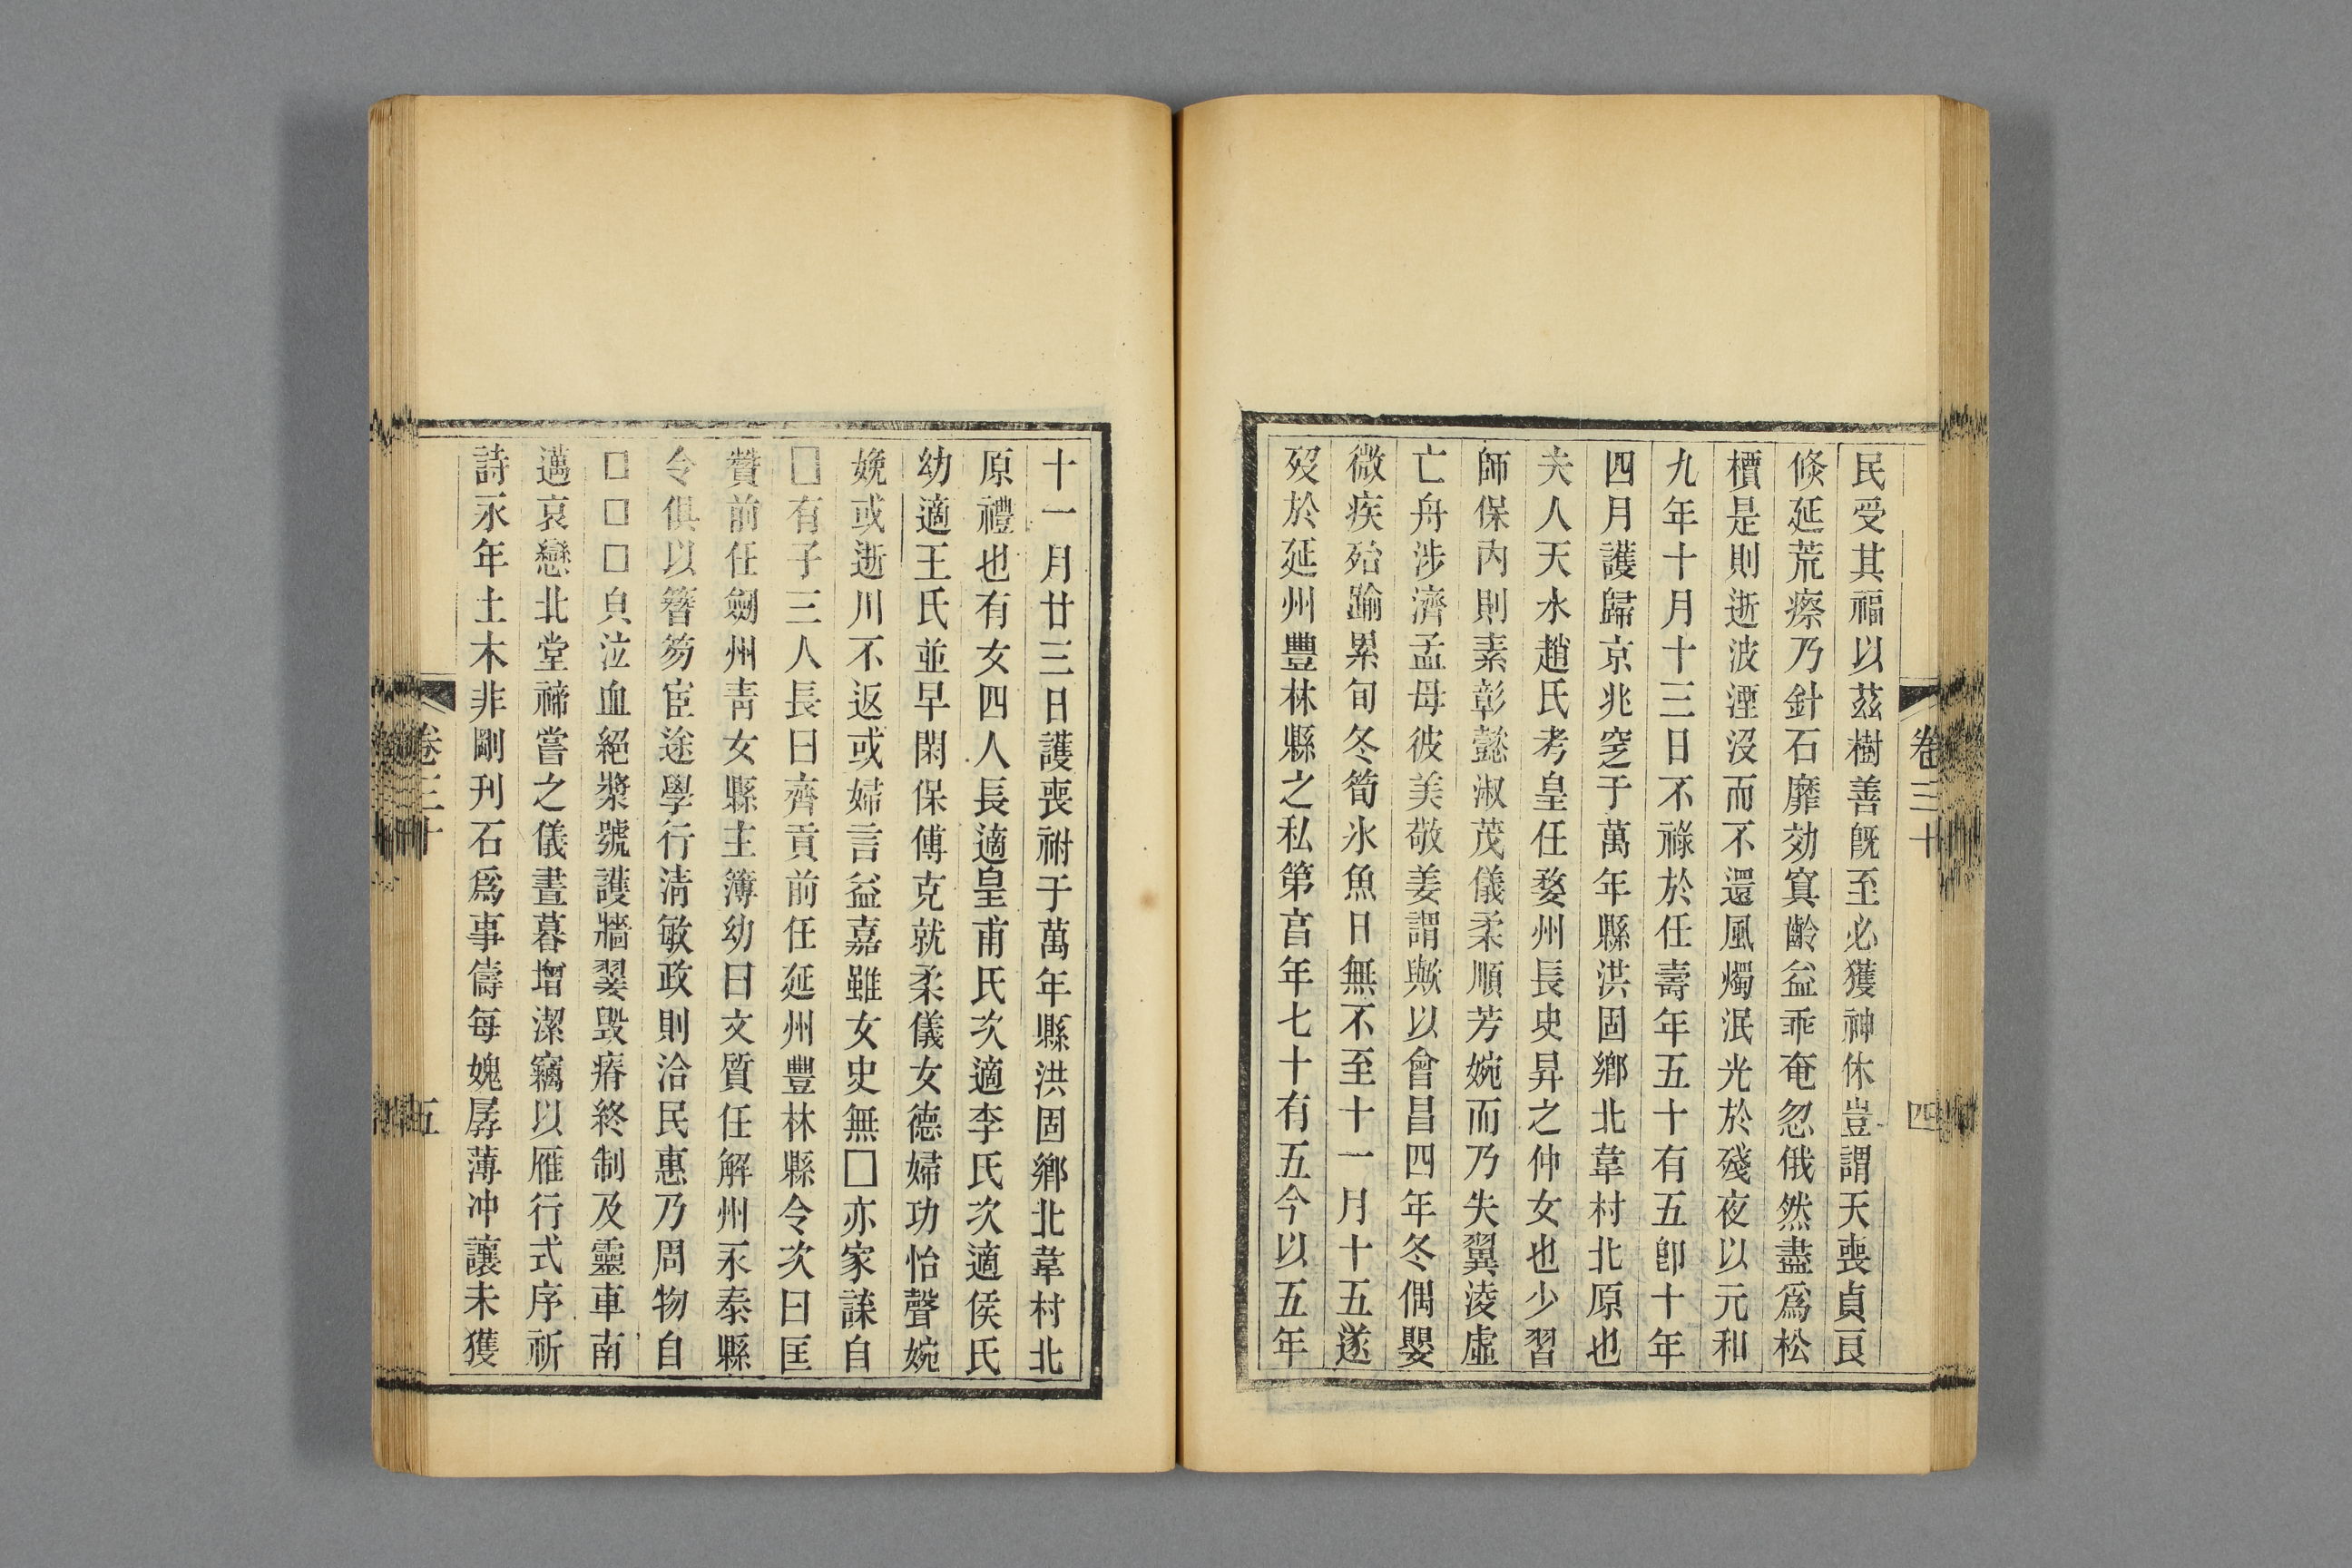 民受其福以茲樹善旣至必獲神休豈謂天喪貞良
倐延荒瘵乃針石靡効寘齡益乖奄忽俄然盡爲松
檟是則逝波湮沒而不還風燭泯光於殘夜以元和
九年十月十三日不祿於任壽年五十有五卽十年
四月護歸京兆窆于萬年縣洪固鄉北韋村北原也
夫人天水趙氏考皇任婺州長史昇之仲女也少習
師保內則素彰懿淑茂儀柔順芳婉而乃失翼淩虛
亡舟涉濟孟母彼美敬姜謂歟以會昌四年冬偶嬰
微疾殆踰累旬冬筍氷魚日無不至十一月十五遂
歿於延州豐林縣之私第亯年七十有五今以五年
卷三十
四
十一月廿三日護喪祔于萬年縣洪固鄉北韋村北
原禮也有女四人長適皇甫氏次適李氏次適侯氏
幼適王氏並早閑保傅克就柔儀女德婦功怡聲婉
娩或逝川不返或婦言益嘉雖女史無□亦家諜自
□有子三人長曰齊貢前任延州豐林縣令次曰匡
贊前任劒州靑女縣主簿幼曰文質任解州永泰縣
令俱以簪笏宦途學行淸敏政則洽民惠乃周物自
□□□負泣血絕漿號護牆翣毀瘠終制及靈車南
邁哀戀北堂禘嘗之儀晝暮增潔竊以雁行式序祈
詩永年土木非剛刋石爲事儔每媿孱薄沖讓未獲
卷三十
五